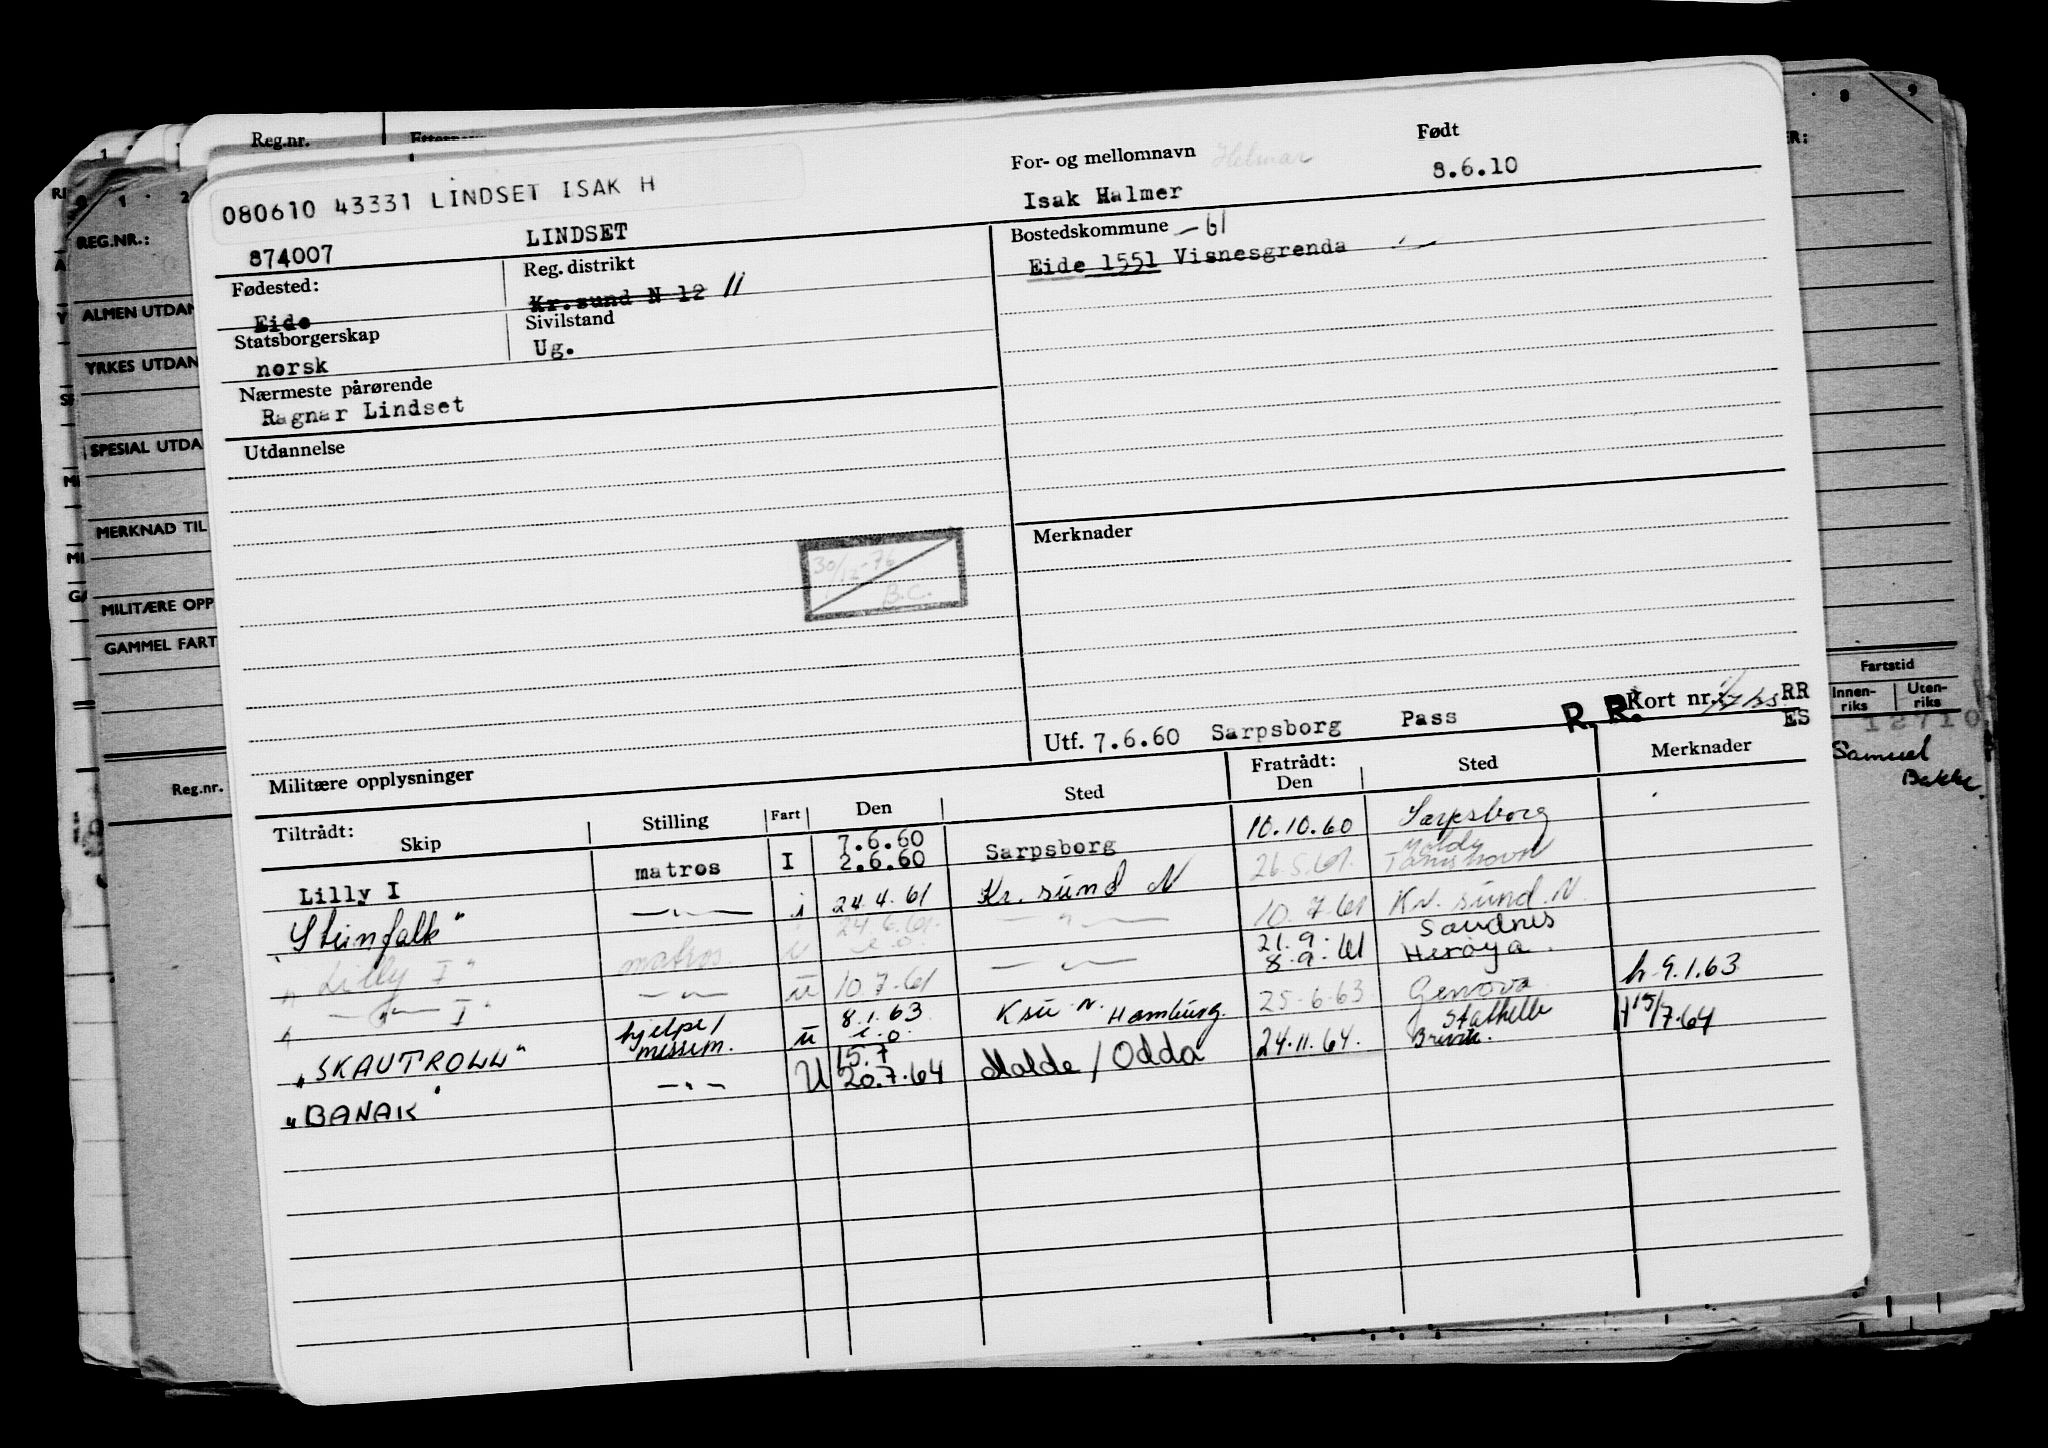 Reg.nr.
For- og mellomnavn Helmar
Født
080610 43331 LINDSET ISAK H
Isak Halmer
8.6.10
874007
LINDSET
Bostedskommune - 61
Fødested:
Reg. distrikt
Eide 1551 Visnesgrenda
Eide
Kr.sund N 12 11
Statsborgerskap
Sivilstand
norsk
Ug.
Nærmeste pårørende
Ragnar Lindset
Utdannelse
Merknader
30/12-76
B.C.
Kort nr.:
RR
R. R.
ES
Utf. 7.6.60 Sarpsborg Pass
Militære opplysninger
Tiltrådt:
Fratrådt:
Skip Stilling Fart Den Sted Den Sted Merknader
Lilly I matros I 7.6.60 2.6.60 Sarpsborg 10.10.60 Sarpsborg
"Steinfalk" -"- i 24.4.61 Kr. sund N 26.5.61. Molde
"Lilly I" matros u 24.6.61. e.o. -"- 10.7.61 Kr. sund. N.
" -"- I" -"- u 10.7.61 -"- 21.9. 8.9.61 Sandnes Herøya.
"SKAUTROLL" hjelpe/messem. u 8.1.63 e.o. Ksu N. Hamburg. 25-6-63 Genova h 9.1.63
"BANAK" -"- U 15.7 20.7.64 Molde / Odda 24.11.64. Stathelle Brevik. 15/7-64
RI
REG.NR.:
ALMEN UTDAN
YRKES UTDAN
SPESIAL UTDA
MERKNAD TIL
MILITÆRE OPP
GAMMEL FART
Reg.nr.
1 2
8 9
R:
Fartstid
Innenriks
Utenriks
Samuel
Bakke.